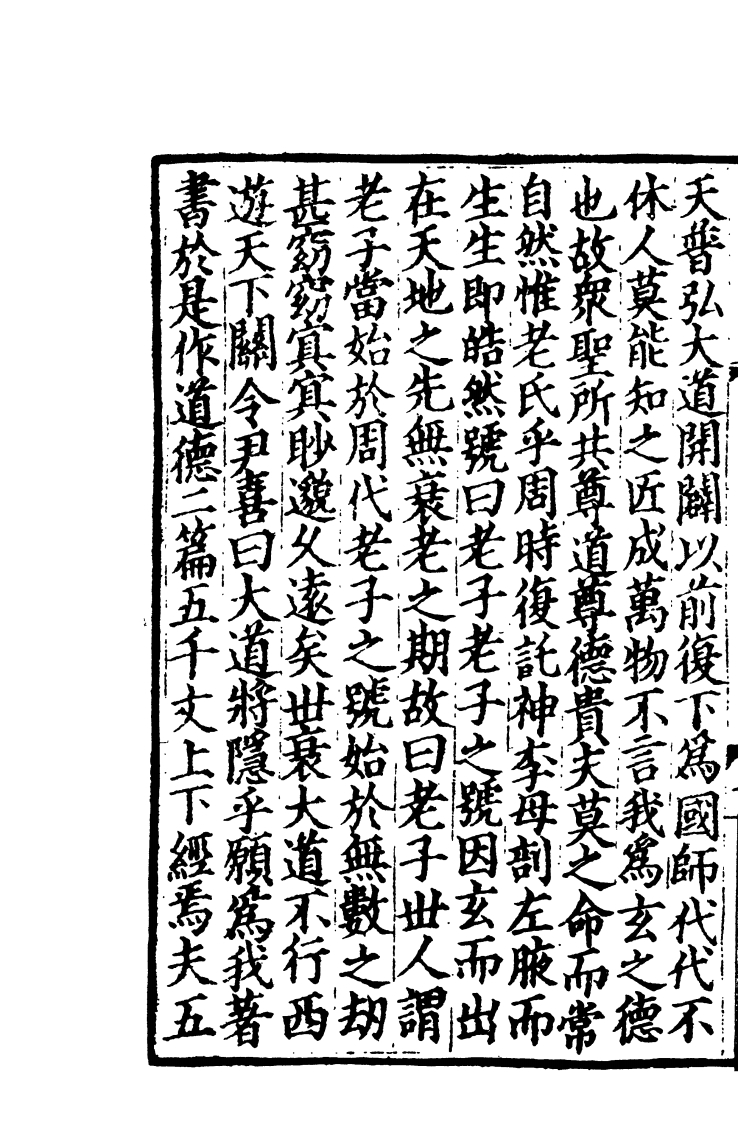 天普弘大道開闢以前復下爲國師代代不
休人莫能知之匠成萬物不言我爲玄之德
也故衆聖所共尊道尊德貴夫莫之命而常
自然惟老氏乎周時復託神李母剖左腋而
生生即皓然號曰老子老子之號因玄而出
在天地之先無衰老之期故曰老子丗人謂
老子當始於周代老子之號始於無數之劫
甚窈窈冥冥眇邈久遠矣丗衰大道不行西
遊天下關令尹喜曰大道將隱乎願爲我著
書於是作道德二篇五千文上下經焉夫五